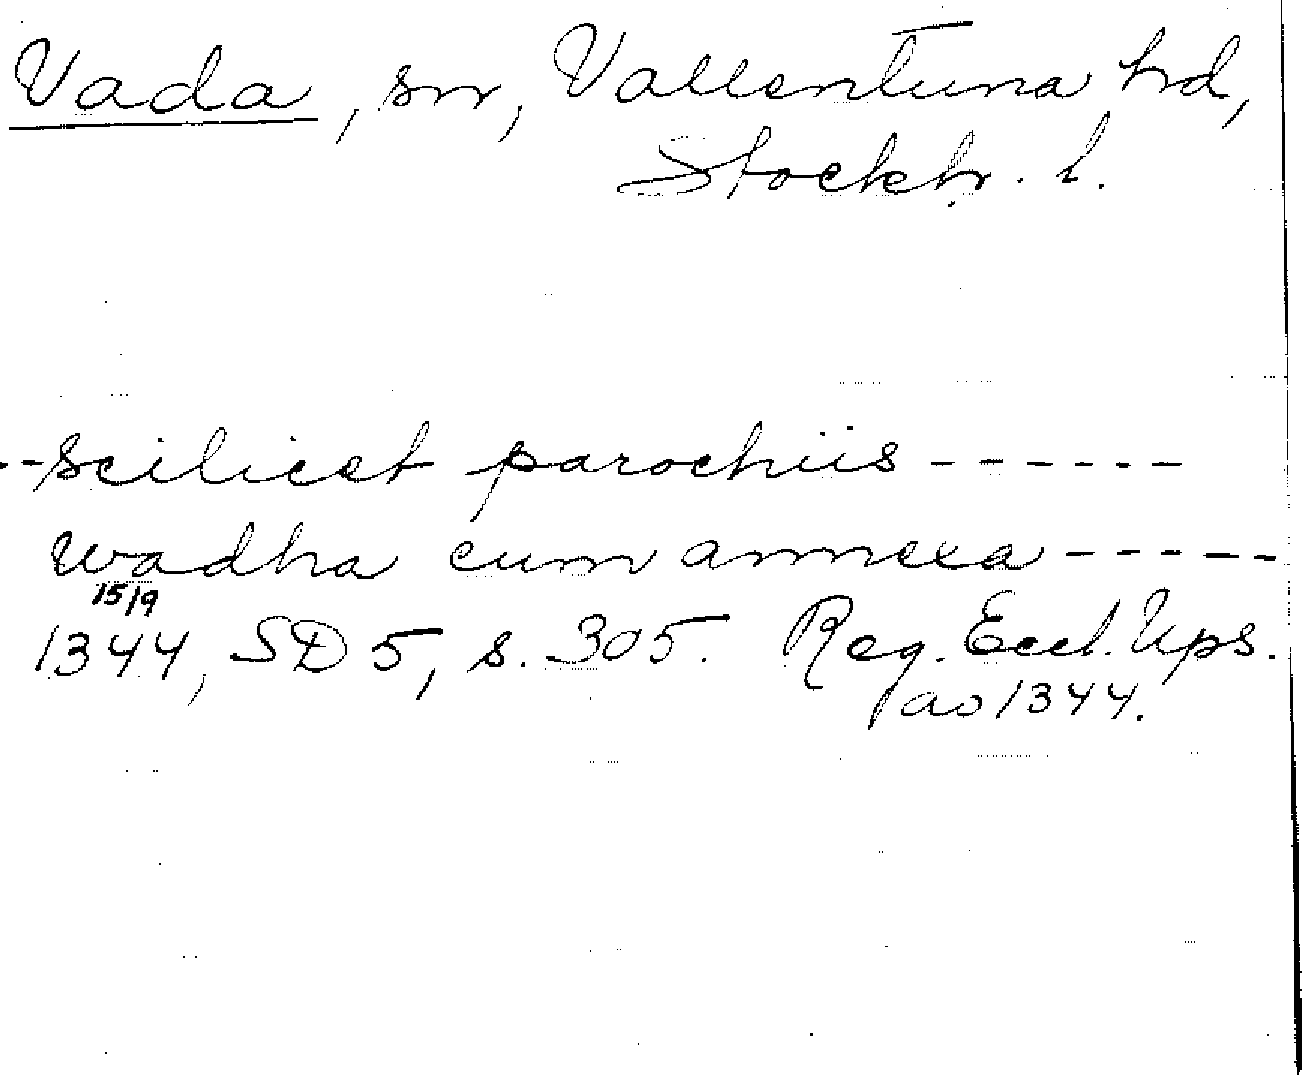 Vada, sn, Vallentuna hd,
Stockh. l.
--scilicet parochiis ------
wadha cum annexa -----
15/9
1344, SD 5, s. 305. Reg. Eccl. Ups.
ao 1344.